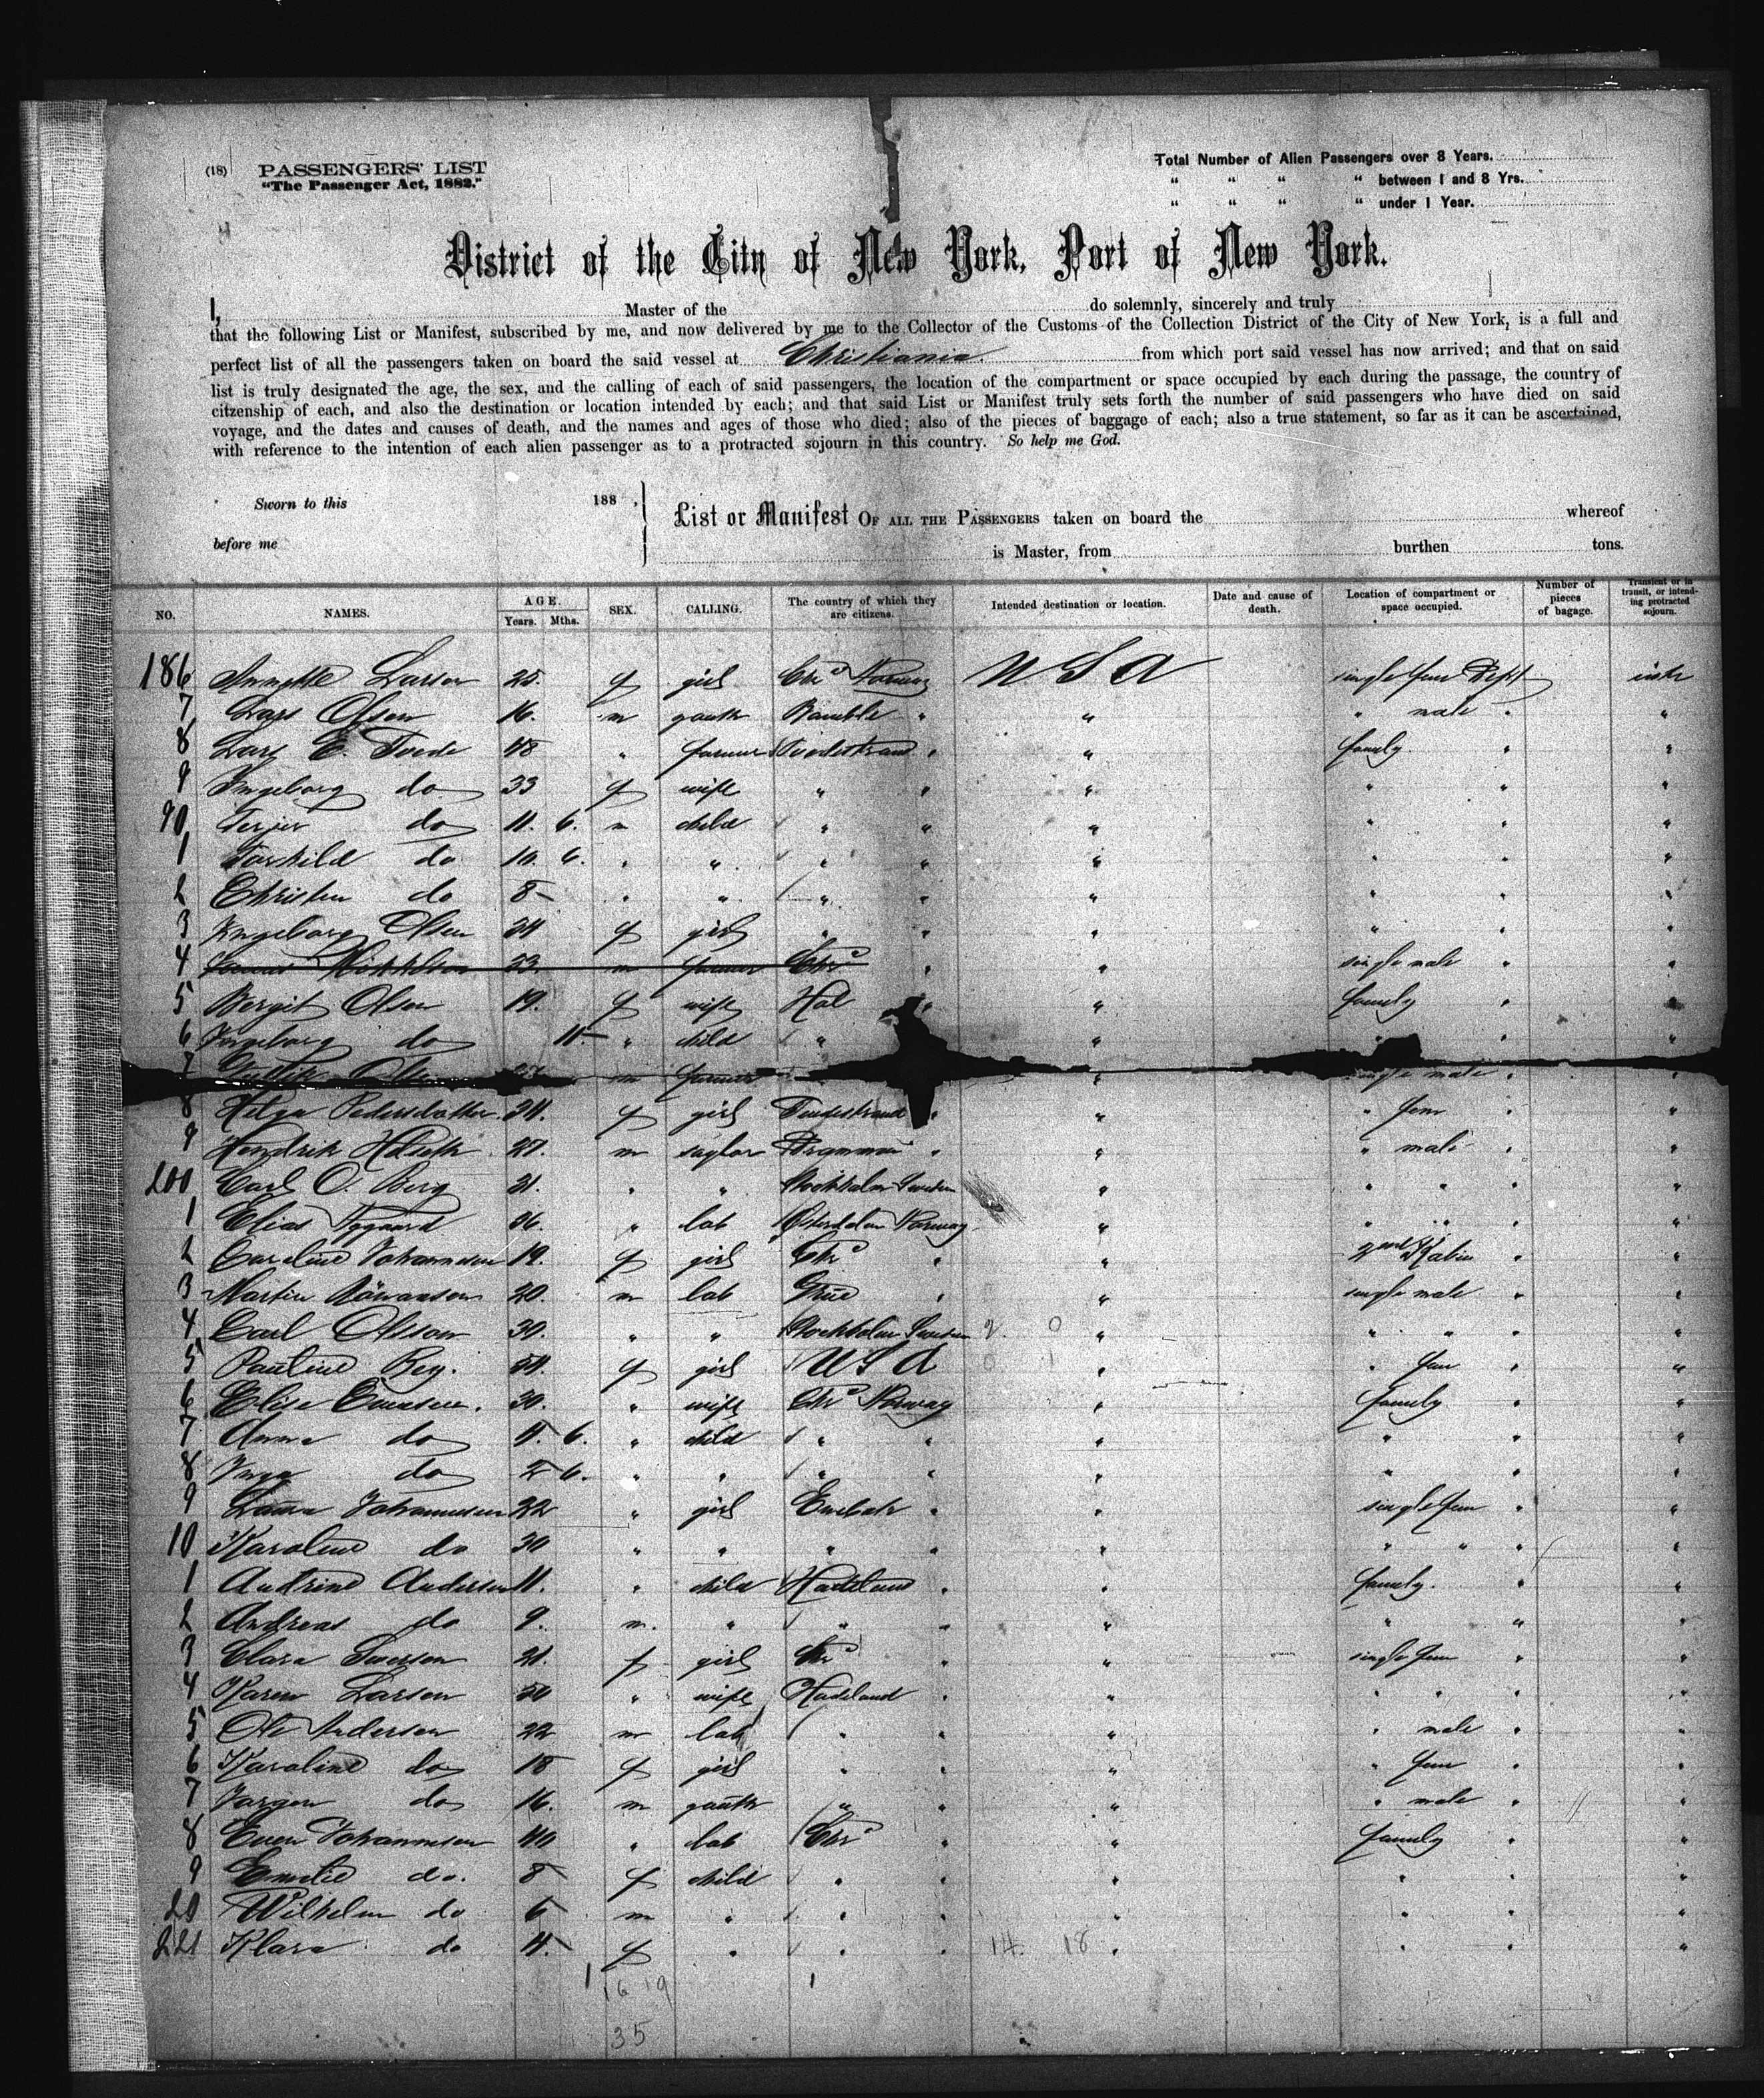 (18) PASSENGERS' LIST
"The Passenger Act, 1882."
Total Number of Alien Passengers over 8 Years.
" " " " between 1 and 8 Yrs.
" " " " under 1 Year.
District of the City of New York, Port of New York.
I, Master of the do solemnly, sincerely and truly
that the following List or Manifest, subscribed by me, and now delivered by me to the Collector of the Customs of the Collection District of the City of New York, is a full and
perfect list of all the passengers taken on board the said vessel at Christiania. from which port said vessel has now arrived; and that on said
list is truly designated the age, the sex, and the calling of each of said passengers, the location of the compartment or space occupied by each during the passage, the country of
citzenship of each, and also the destination or location intended by each; and that said List or Manifest truly sets forth the number of said passengers who have died on said
voyage, and the dates and causes of death, and the names and ages of those who died; also of the pieces of baggage of each; also a true statement, so far as it can be ascertained,
with reference to the intention of each alien passenger as to a protracted sojourn in this country. So help me God.
Sworn to this 188 ,
before me
List or Manifest OF ALL THE PASSENGERS taken on board the whereof
is Master, from burthen tons.
NO. NAMES. AGE. Years. Mths. SEX. CALLING. The country of which they are citizens. Intended destination or location. Date and cause of death. Location of compartment or space occupied. Number of pieces of bagage. Transient or in transit, or intending protracted sojourn.
186 Larsen 25. f girl Chr Norway U S A single fem Dept
7 Lars Olsen 16. m Bamble " " " male " "
8 Lars E. 48 " farmer " " family " "
9 Ingeborg do 33 f wife " " " " " "
90 Terjer do 11. 6. m child " " " " " "
1 do 10. 6. " " " " " " " "
2 Christen do 8 - " " " " " " " "
3 Ingeborg Olsen 24 f girl " " " " " "
4 m farmer Chr " " single male " "
5 Bergit Olsen 19. f wife Hal " " family " "
6 Ingeborg do 11 - " child " " " "
7 Olsen m farmer " single male "
8 Helga Pedersdatter 24. f girl " " " fem " "
9 Hendrik 27. m saylor " " " male " "
200 Carl O. Berg 21. " " Stockholm Sweden " " " "
1 Elias 36. " lab Norway " " " "
2 Caroline Johannesen 19. f girl Chr " " 2nd Kabin " "
3 Martin 20. m lab Grue " " single male " "
4 Carl Olsson 30. " " Stockholm Sweden " " " " "
5 Pauline f girl U S A " " fem " "
6 Elise 30. " wife Chr Norway " family " "
7 Anna do 4. 6. " child " " " " " "
8 Inga do 2 6. " " " " " " " "
9 Laura Johannesen 22 " girl " " single fem " "
10 Karoline do 30 " " " " " " " " "
1 Andrine Andersen 11. " child Hadeland " " family. " "
2 Andreas do 9. m. " " " " " " "
3 Clara Iversen 21. f girl Chr " " single fem " "
4 Karen Larsen " wife Hadeland " " " " " "
5 Ole Andersen 22 m lab " " " " male " "
6 Karoline do 18 f girl " " " " fem " "
7 Jorgen do 16. m " " " " male " "
8 Even Johannesen 40 " lab Chr " " family " "
9 Emelie do. 8 - f child " " " " " "
20 Wilhelm do 6 - m " " " " " " "
221 Klara do 4. - f " " " 14. 18 " " " "
1 16 19 1
35